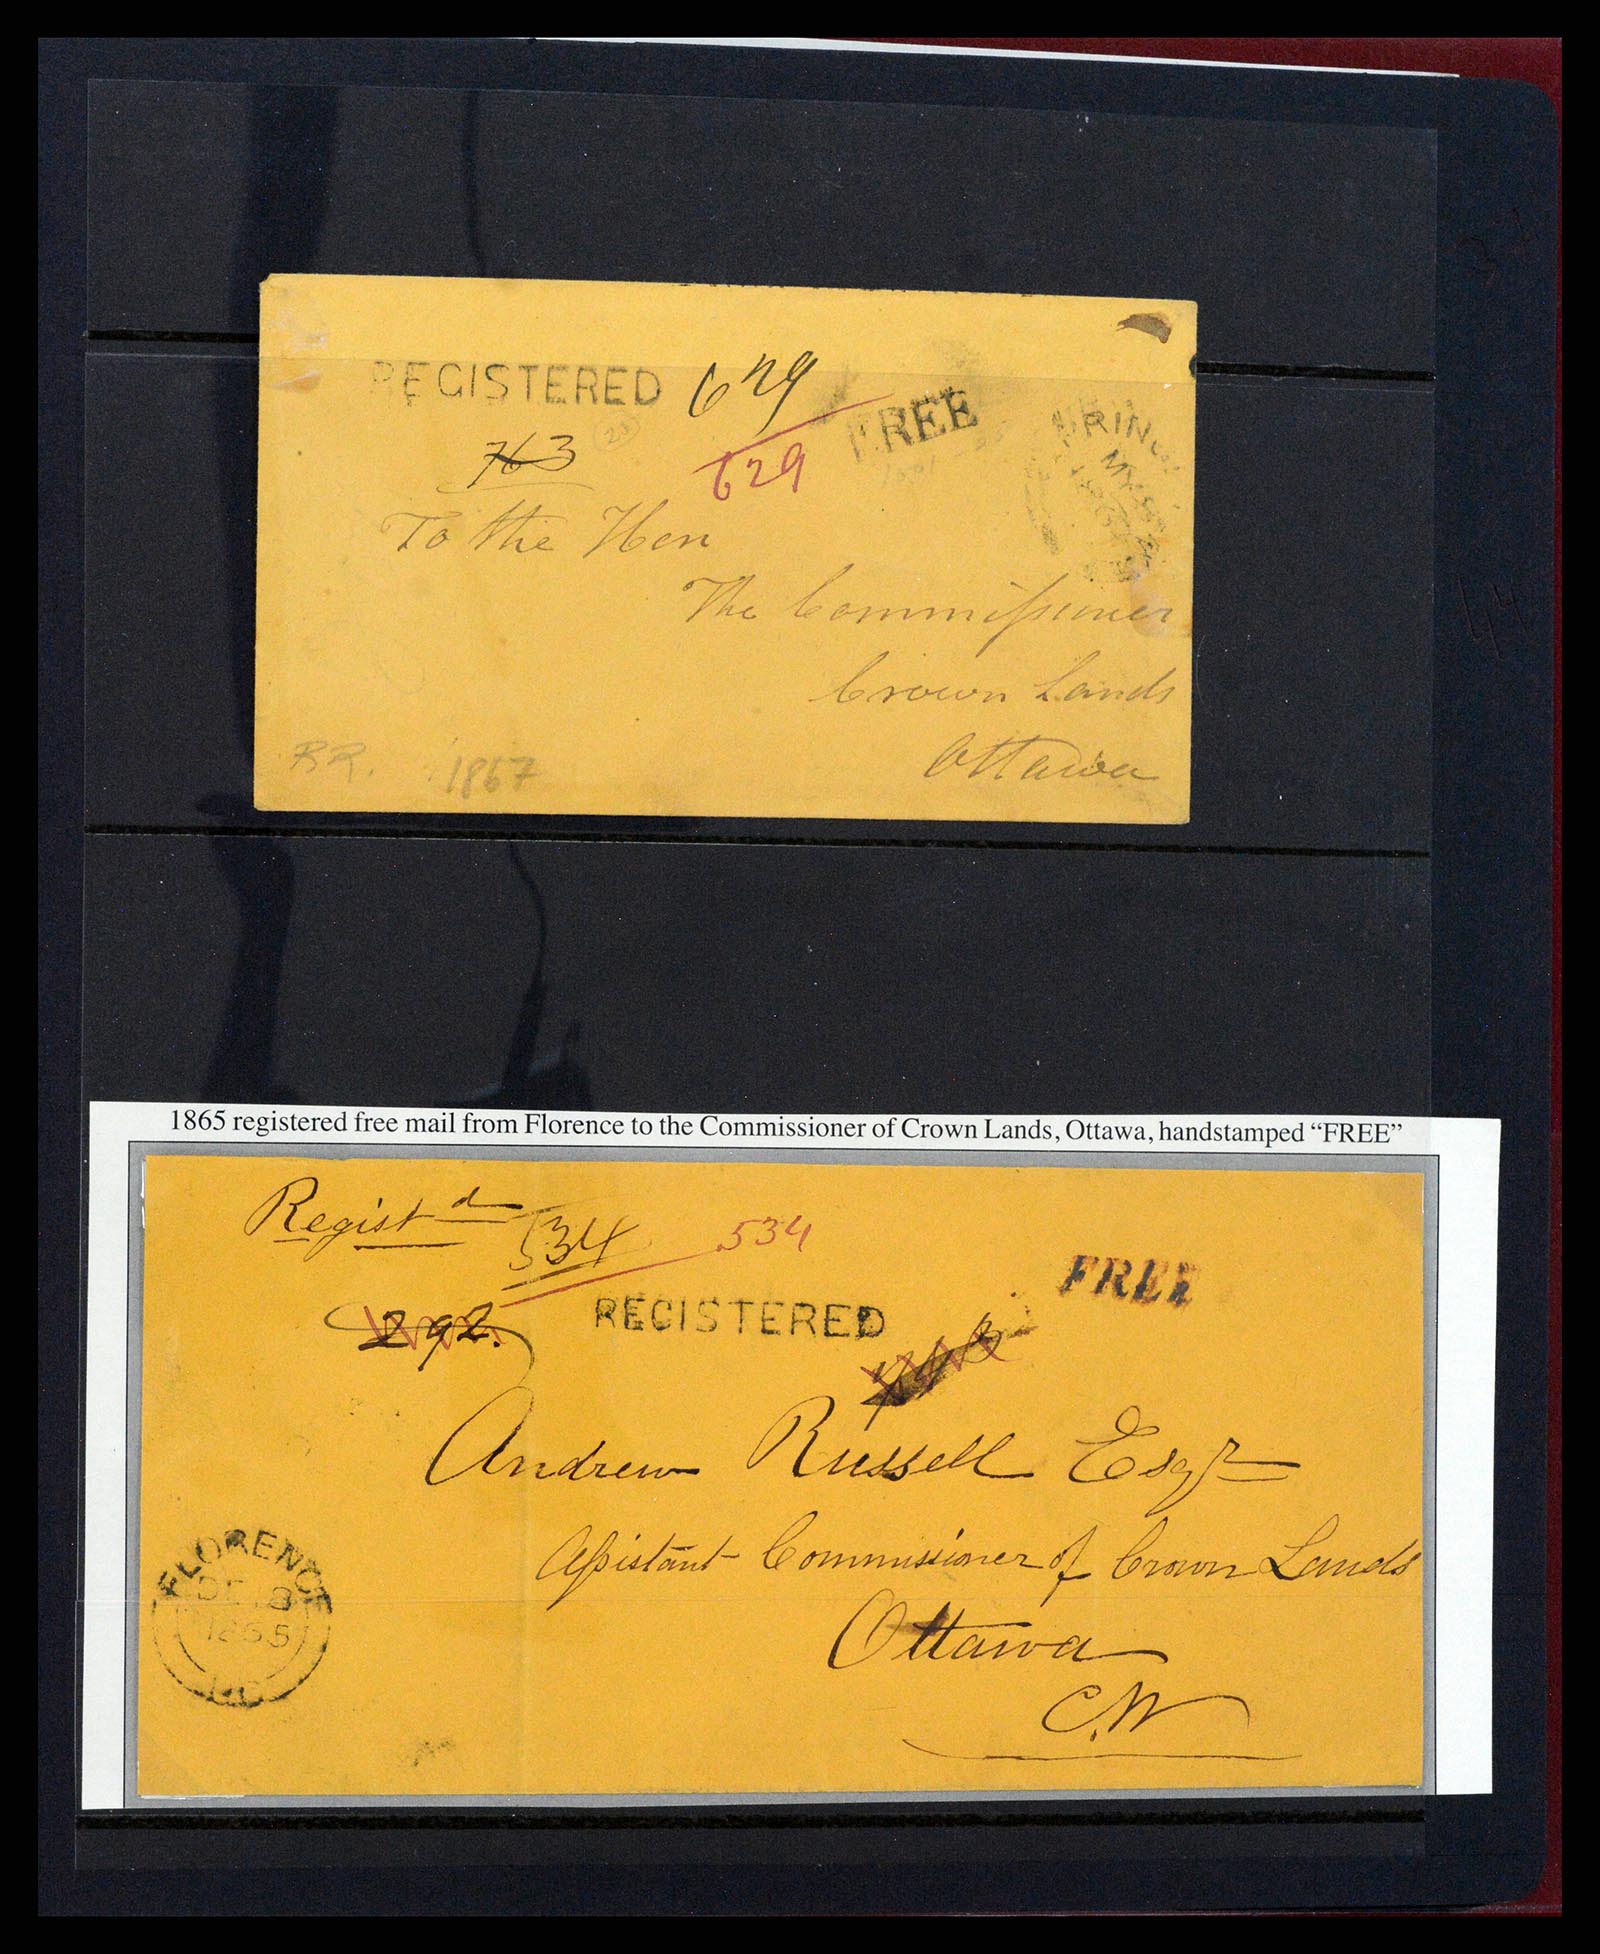 REGISTERED 629 FREE
763
629
23
To the Hon
The Commissioner
Crown Lands
Ottawa
RR. 1867
1865 registered free mail from Florence to the Commissioner of Crown Lands, Ottawa, handstamped “FREE”
Registd 534 534
FREE
292. REGISTERED
Andrew Russell Esqr
Assistant Commissioner of Crown Lands
Ottawa
C.W
FLORENCE
DE 18
1865